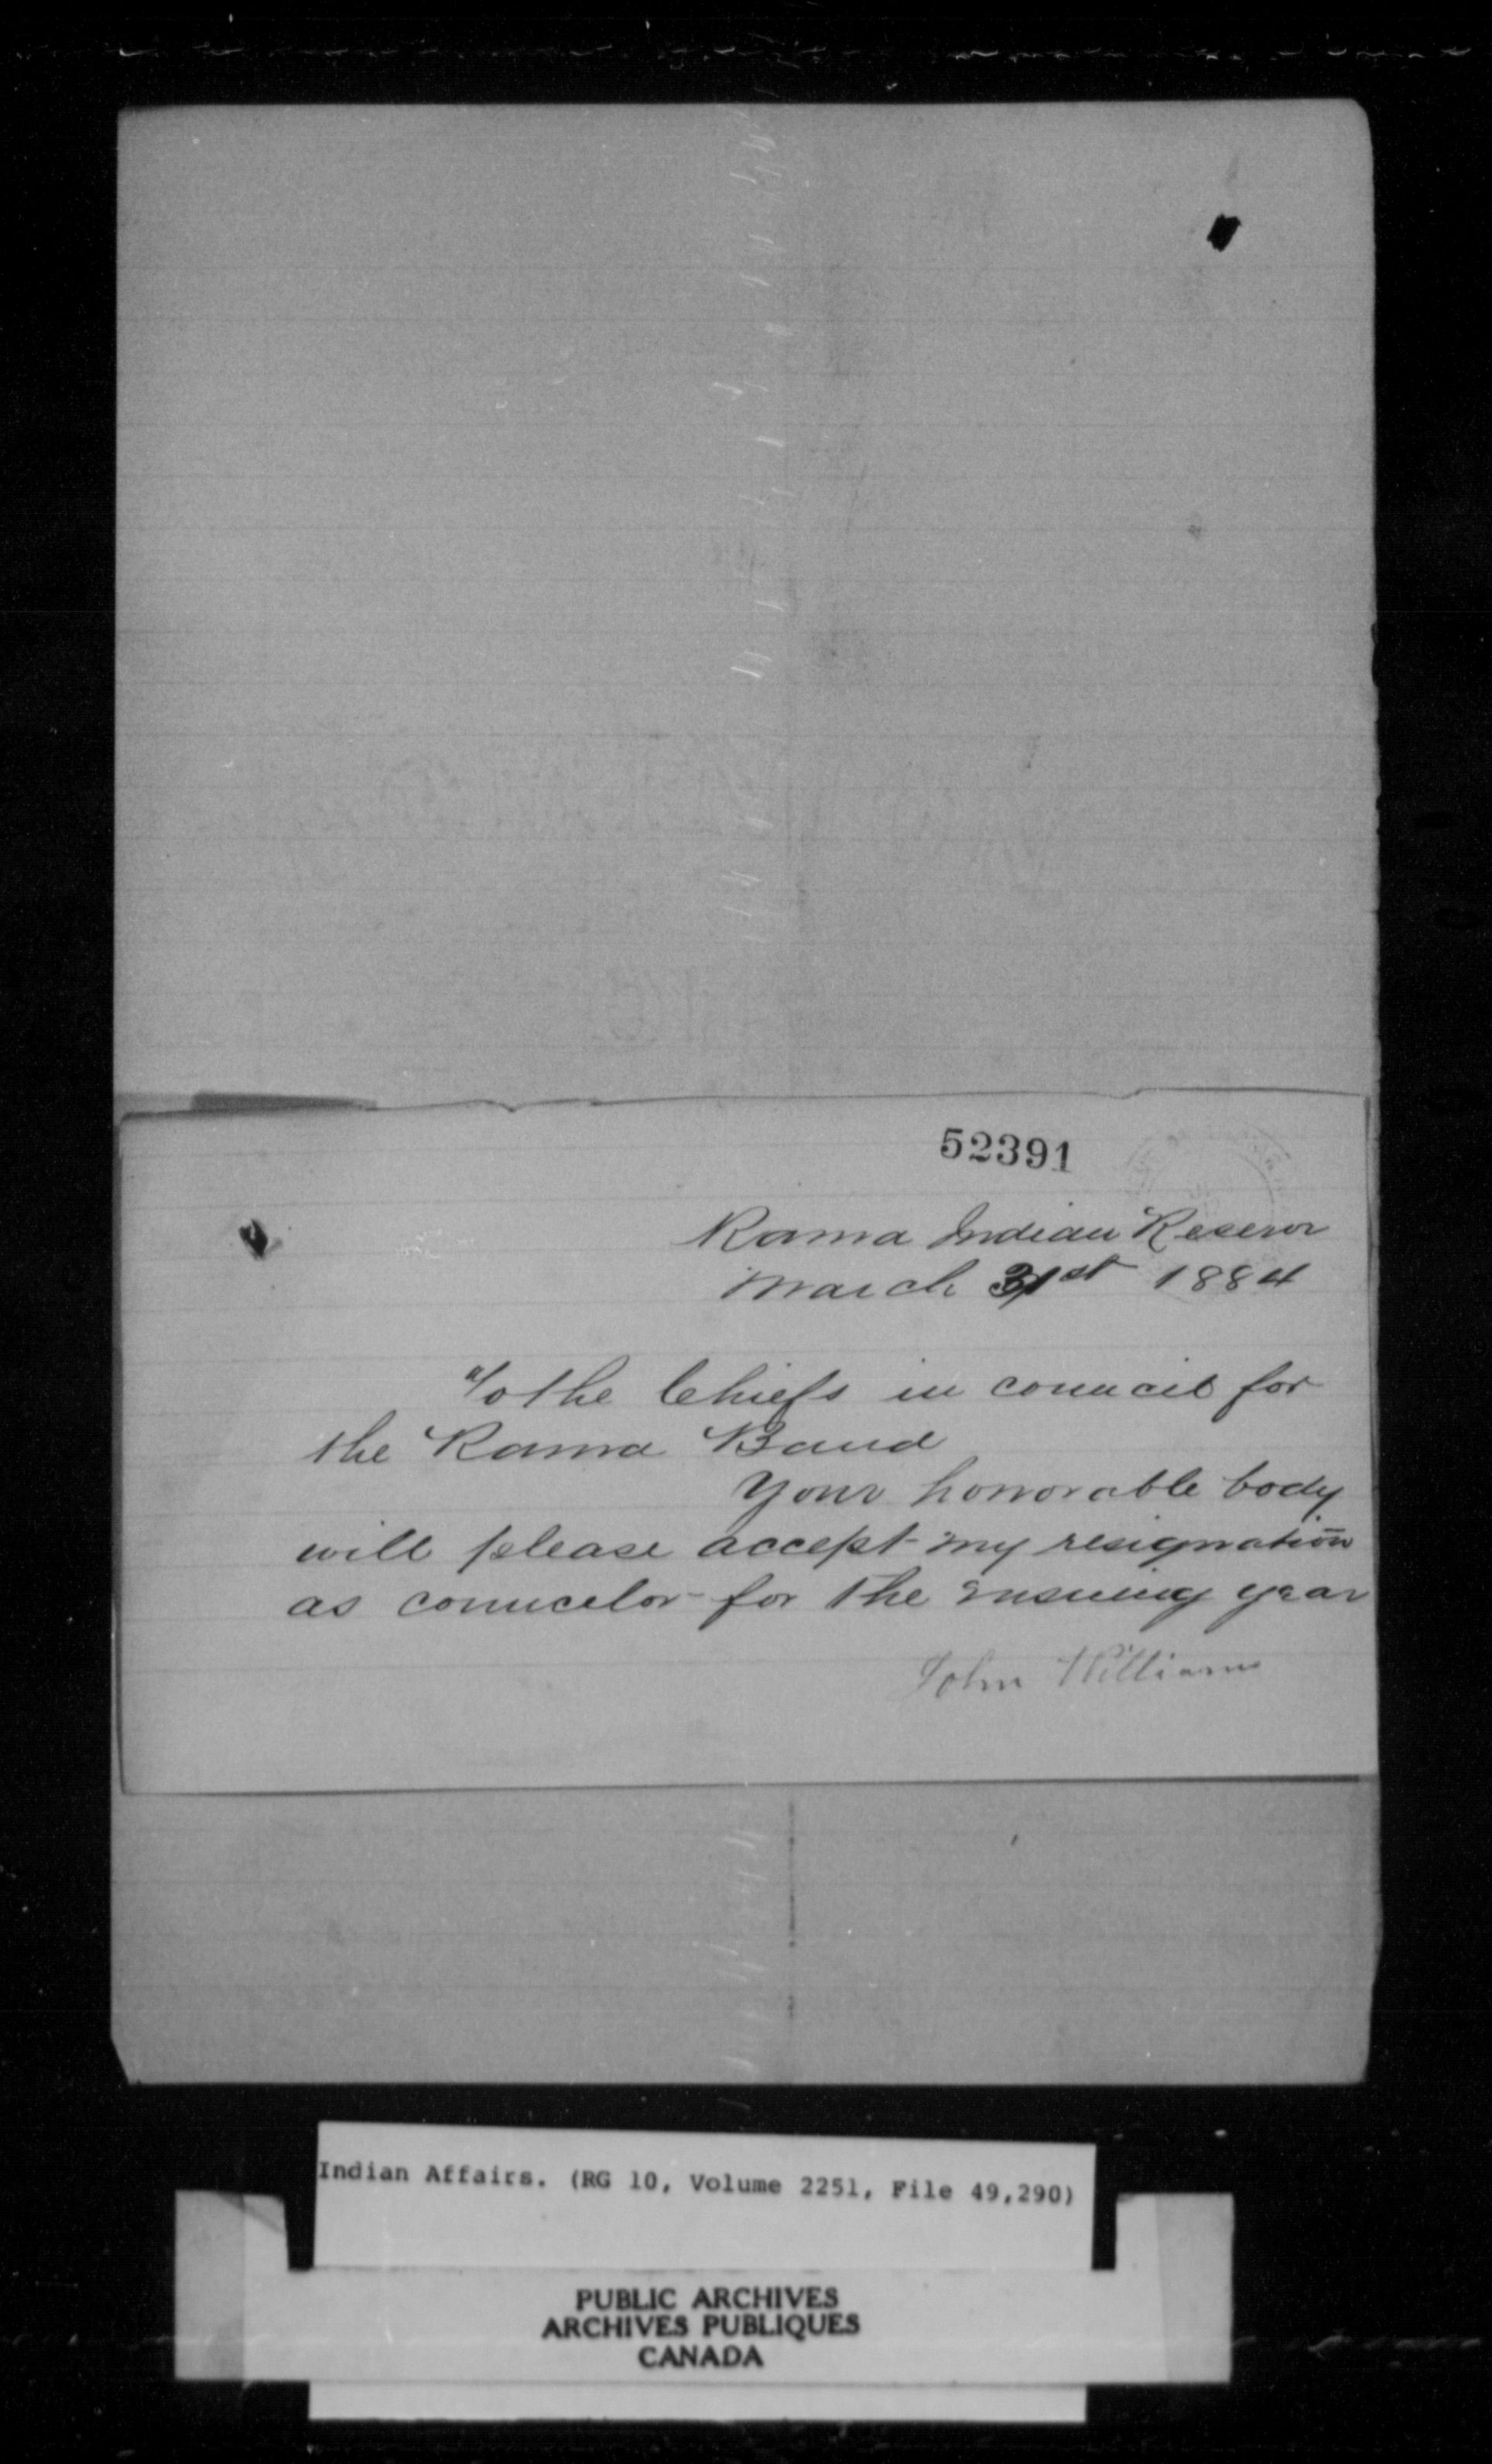 52391
Rama Indian Reserve
March 31st 1884
To the Chiefs in council for
the Rama Band
Your honorable body
will please accept my resignation
as councelor for the ensuing year
John Williams
Indian Affairs. (RG 10, Volume 2251, File 49,290)
PUBLIC ARCHIVES
ARCHIVES PUBLIQUES
CANADA